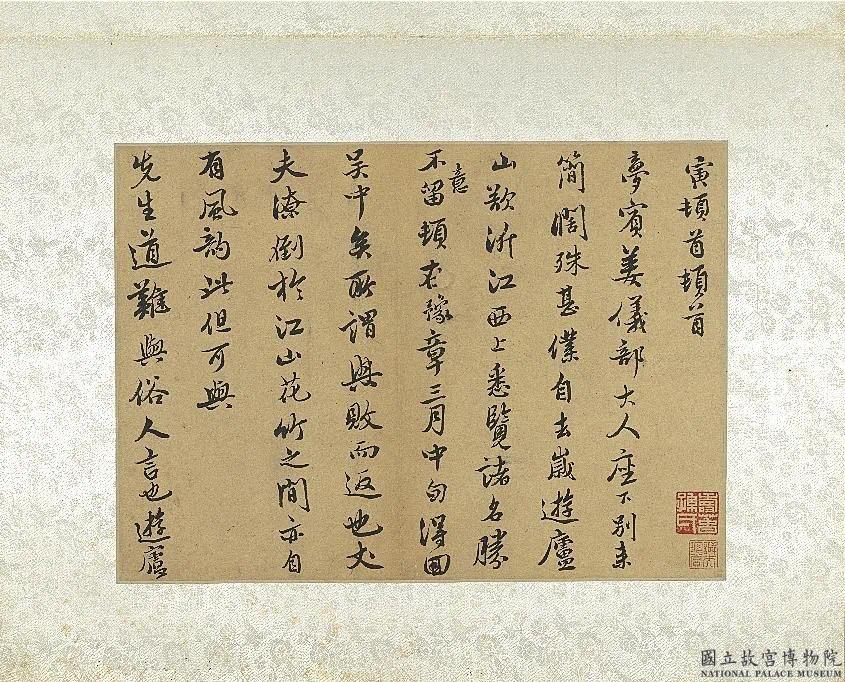 寅頓首頓首
夢賓姜儀部大人座下別來
簡闊殊甚僕自去歲遊廬
山欲泝江西上悉覽諸名勝
不意留頓在豫章三月中旬得回
吳中矣所謂興敗而返也丈
夫潦倒於江山花竹之間亦自
有風韵此但可與
先生道難與俗人言也遊廬
國立故宮博物院
NATIONAL PALACE MUSEUM